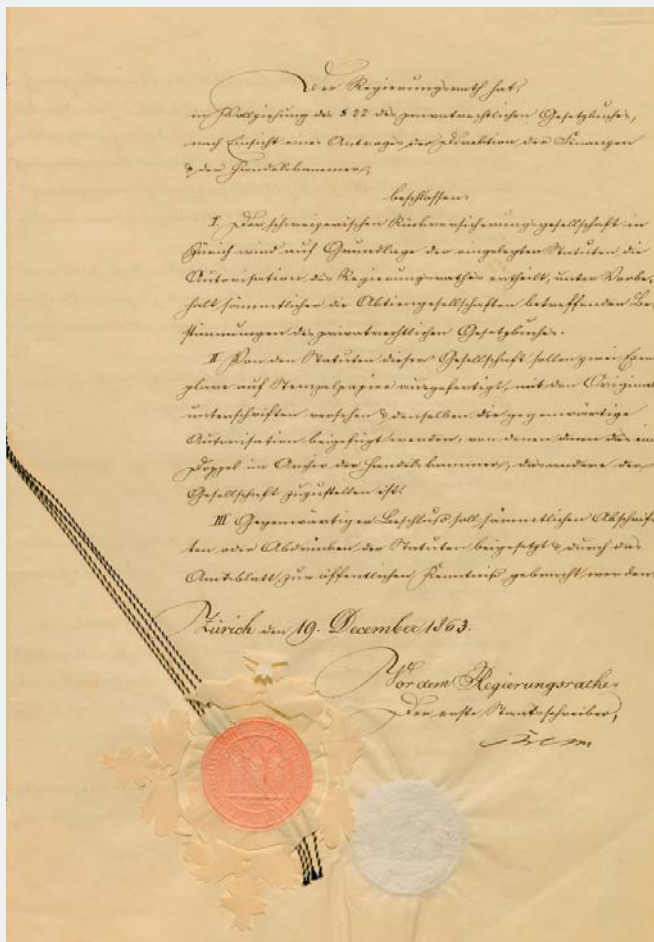 Der Regierungsrath hat,
in Vollziehung des § 22 des privatrechtlichen Gesetzbuches,
nach Einsicht eines Antrages der Direktion der Finanzen
& der Handelskammer,
beschlossen:
I. Der schweizerischen Rückversicherungsgesellschaft in
Zürich wird auf Grundlage der eingelegten Statuten die
Autorisation des Regierungsrathes ertheilt, unter Vorbe,
halt sämmtlicher die Aktiengesellschaften betreffenden Be,
stimmungen des privatrechtlichen Gesetzbuches.
II. Von den Statuten dieser Gesellschaft sollen zwei Exem
plare auf Stempelpapier ausgefertigt, mit den Original
unterschriften versehen & denselben die gegenwärtige
Autorisation beigefügt werden, von denen dann das ein
Doppel im Archiv der Handelskammer, das andere der
Gesellschaft zuzustellen ist.
III Gegenwärtiger Beschluß soll sämmtlichen Abschrif
ten oder Abdrücken der Statuten beigesetzt & durch das
Amtsblatt zur öffentlichen Kenntniß gebracht werden.
Zürich den 19. December 1863.
Vor dem Regierungsrathe:
Der erste Staatsschreiber,